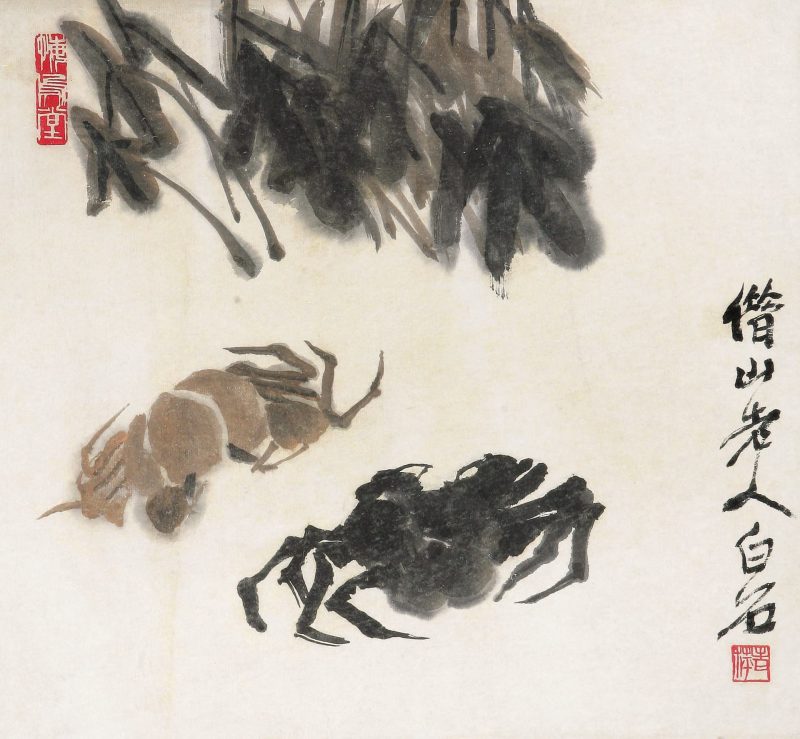 借山老人白石
老萍
悔烏堂